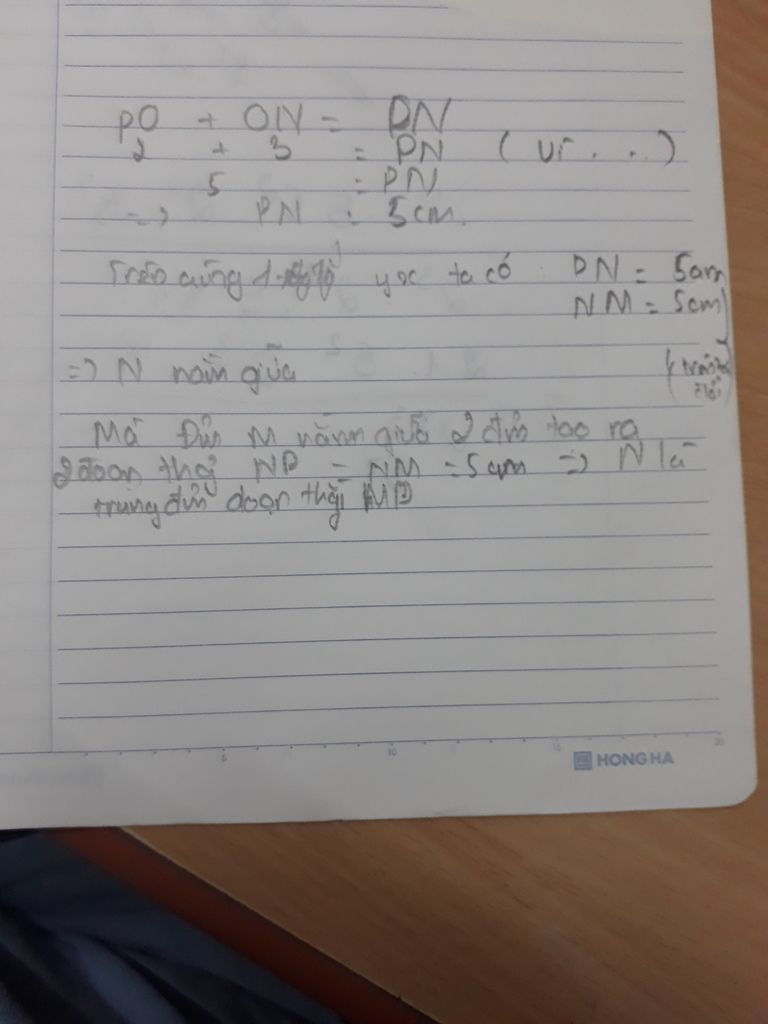 PO + ON = PN
2 + 3 = PN (vì . . .)
5 = PN
=> PN = 5cm.
Trên cùng 1 yox ta có : PN = 5cm
NM = 5cm
=> N nằm giữa
Mà Đỉm M nằm giữa 2 đỉm tạo ra
2 đoạn thẳg NP = NM = 5cm => N là
trung đỉm đoạn thẳg MP
5 10 15 20
HONG HA